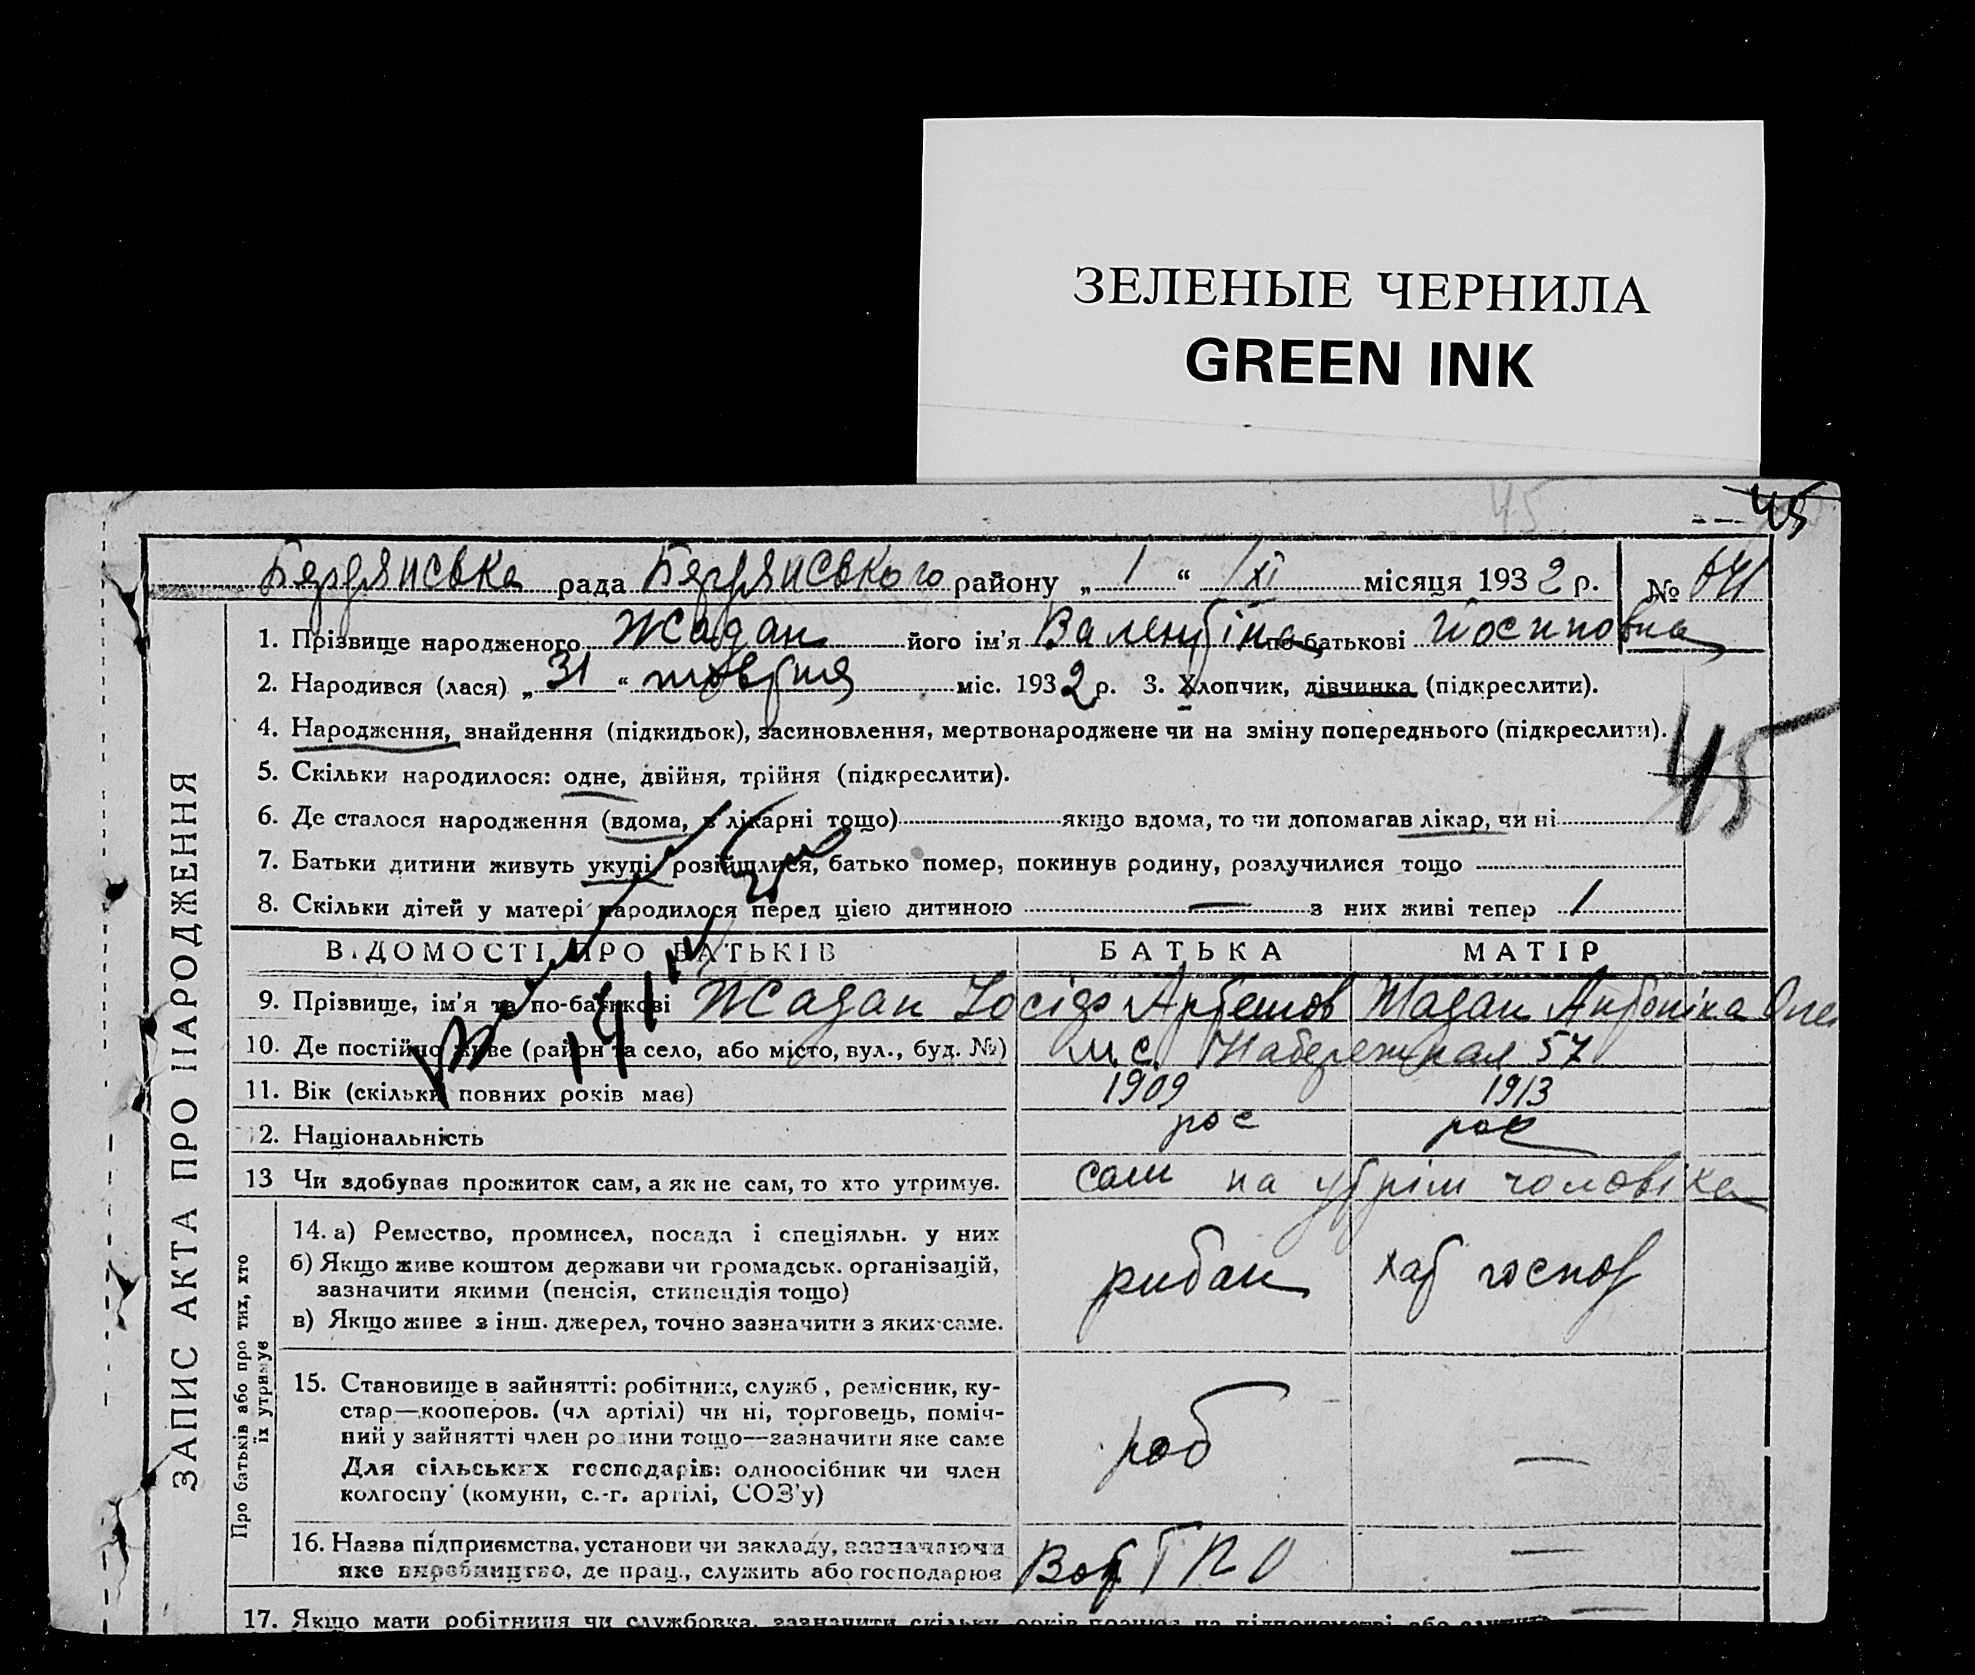 ЗЕЛЕНЫЕ ЧЕРНИЛА
GREEN INK
45
45
Бердянська рада Бердянського району „ 1 “ XI місяця 1932 р. №
1. Прізвище народженого Жадан його ім'я Валентіна по-батькові Йосиповна
2. Народився (лася) „ 31 “ жовтня міс. 1932 р. 3. Хлопчик, дівчинка (підкреслити).
4. Народження, знайдення (підкидьок), засиновлення, мертвонароджене чи на зміну попереднього (підкреслити).
45
5. Скільки народилося: одне, двійня, трійня (підкреслити).
6. Де сталося народження (вдома, в лікарні тощо) якщо вдома, то чи допомагав лікар, чи ні
7. Батьки дитини живуть укупі, розійшлися, батько помер, покинув родину, розлучилися тощо
8. Скільки дітей у матері народилося перед цією дитиною — з них живі тепер 1
ВІДОМОСТІ ПРО БАТЬКІВ БАТЬКА МАТІР
9. Прізвище, ім'я та по-батькові Жадан Іосіф Артемов Жадан Антоніна
10. Де постійно живе (район та село, або місто, вул., буд. №) Набережная 57
11. Вік (скільки повних років має) 1909 1913
12. Національність рос рос
13 Чи здобував прожиток сам, а як не сам, то хто утримує. сам на утрім чоловіка
14. а) Ремество, промисел, посада і спеціяльн. у них
б) Якщо живе коштом держави чи громадськ. організацій,
зазначити якими (пенсія, стипендія тощо)
в) Якщо живе з інш. джерел, точно зазначити з яких-саме.
рибак хат господ
15. Становище в зайнятті: робітник, служб., ремісник, ку-
стар—кооперов. (чл артілі) чи ні, торговець, поміч-
ний у зайнятті член родини тощо—зазначити яке саме
Для сільських господарів: одноосібник чи член
колгоспу (комуни, с.-г. артілі, СОЗ'у)
роб —
16. Назва підприємства, установи чи закладу, зазначаючи
яке виробництво, де прац., служить або господарює
—
17. Якщо мати робітниця чи службовка, зазначити скільки років працює на підприємстві або
ЗАПИС АКТА ПРО НАРОДЖЕННЯ
Про батьків або про тих, хто
їх утримує